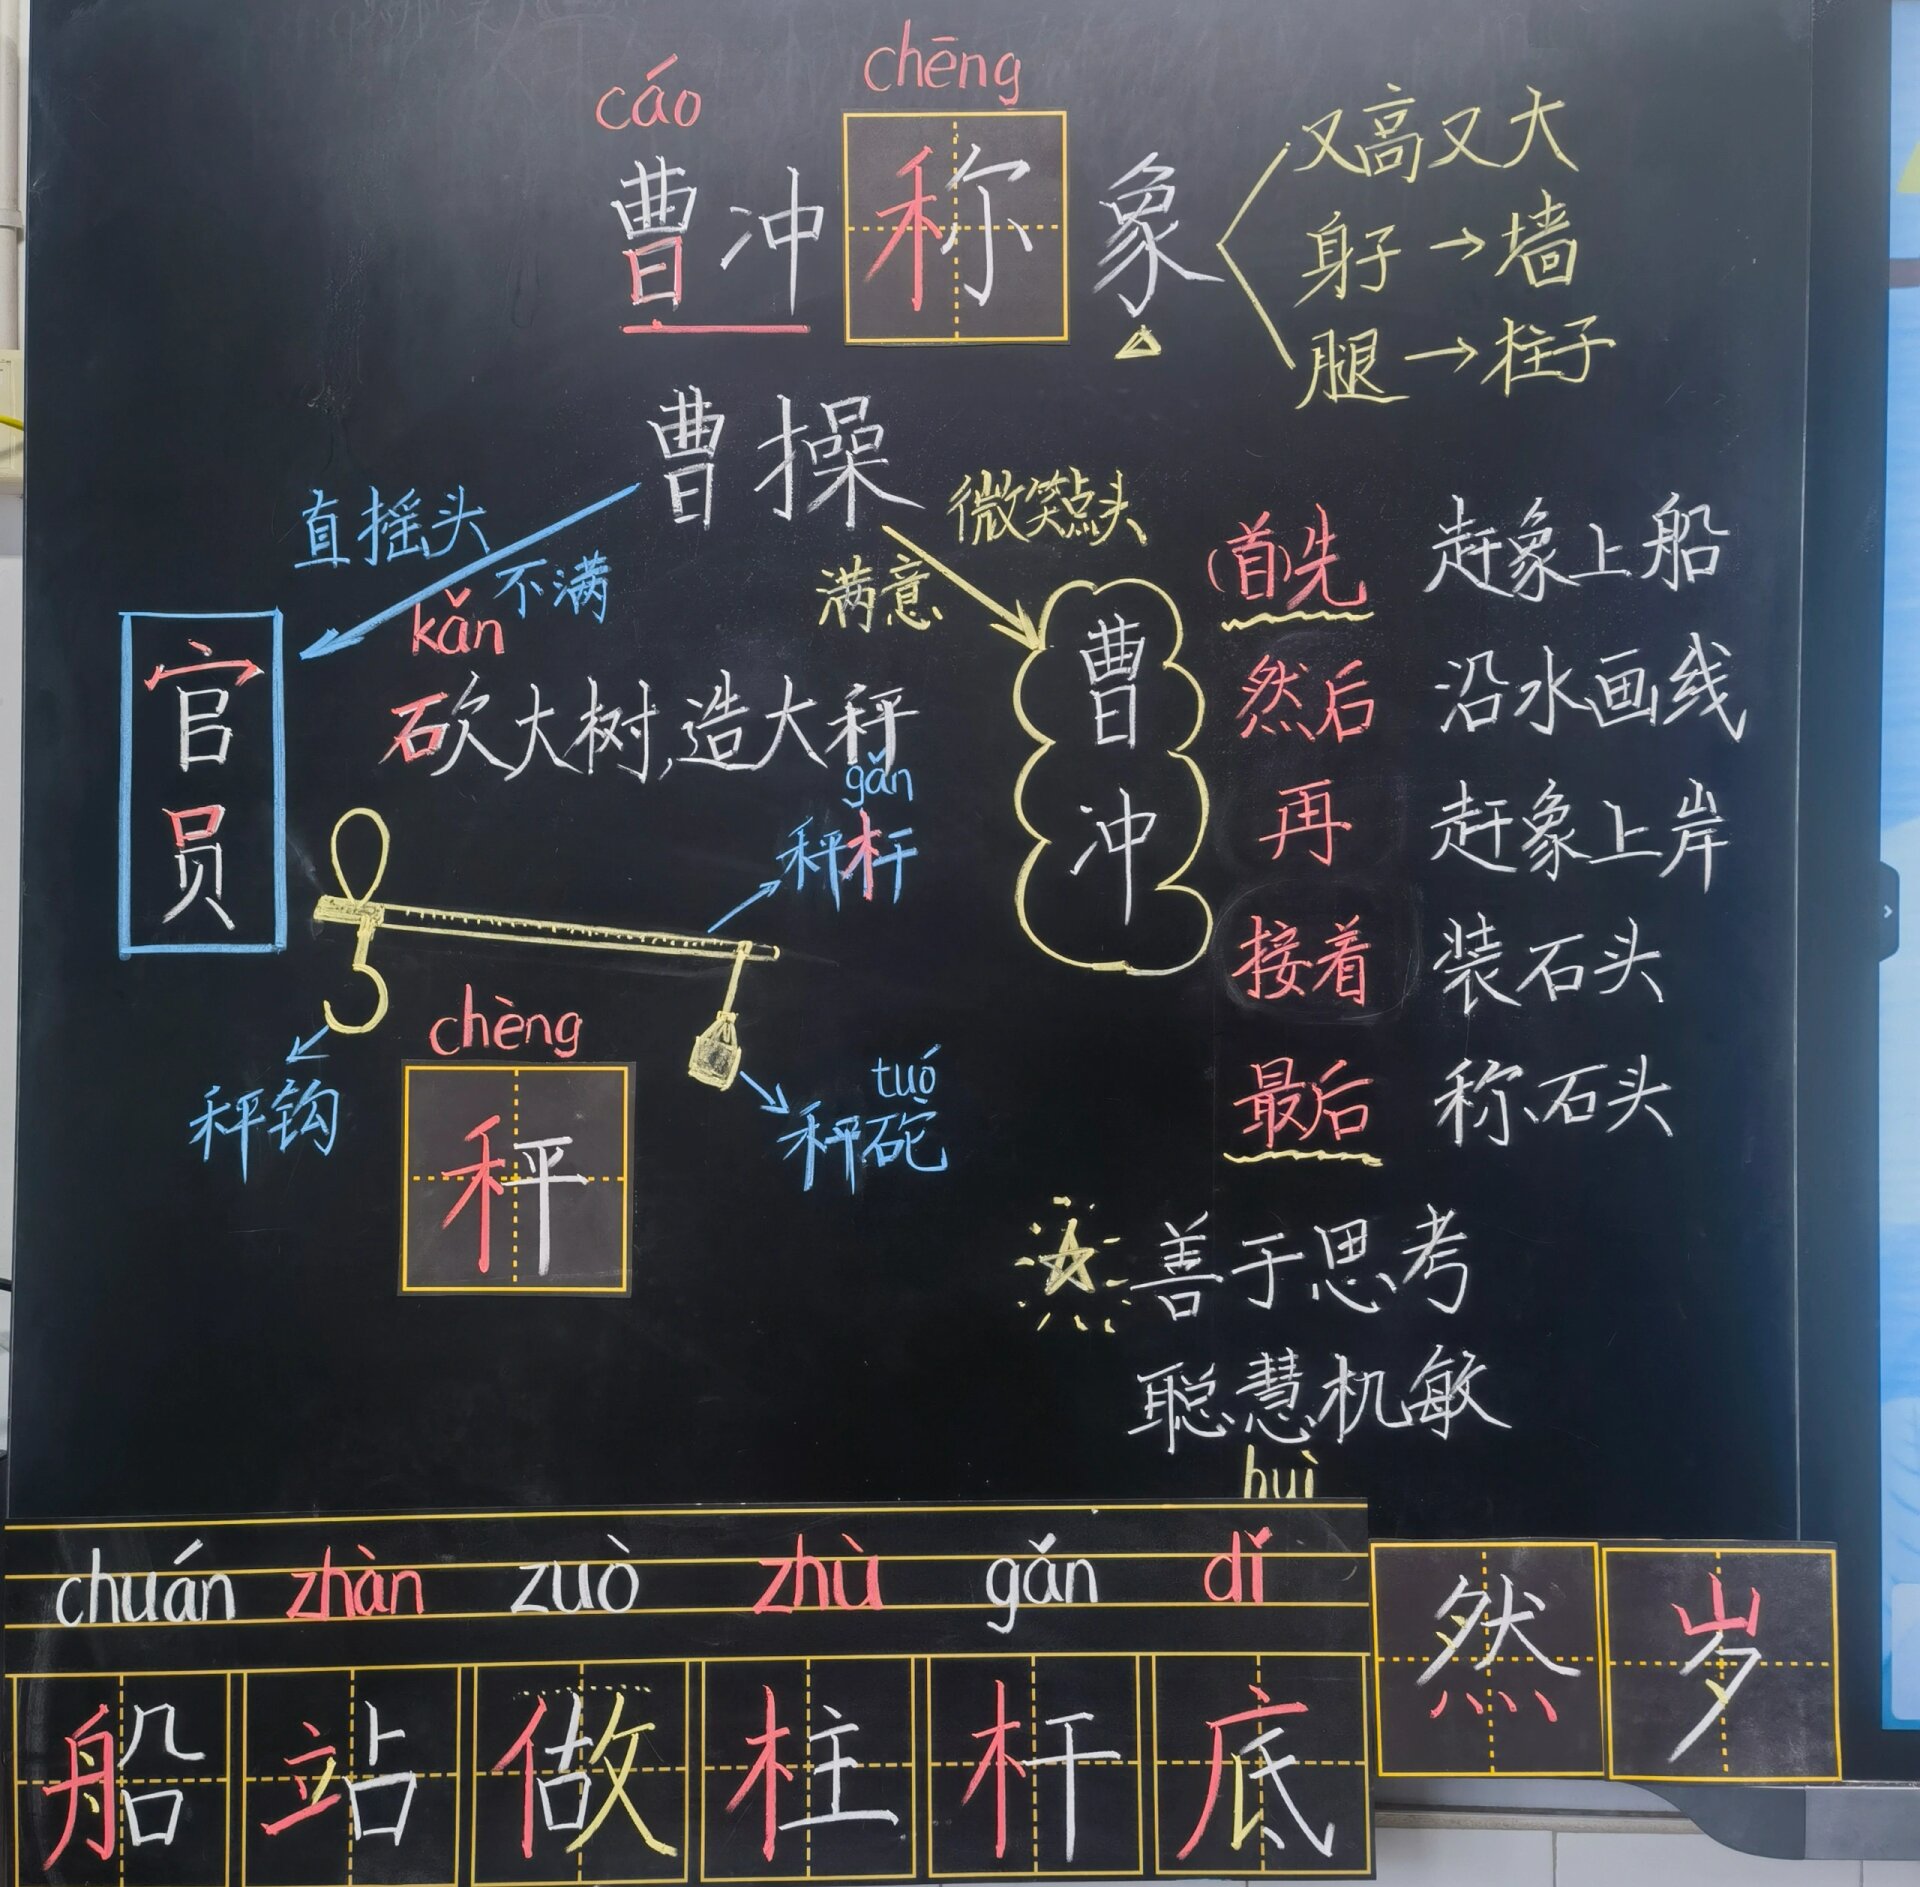 cáo chēng
曹冲称象
又高又大
身子→墙
腿→柱子
曹操
直摇头
不满
微笑点头
满意
官员
kǎn
砍大树,造大秤
gǎn
秤杆
秤钩
chèng
秤
tuó
秤砣
曹冲
(首)先 赶象上船
然后 沿水画线
再 赶象上岸
接着 装石头
最后 称石头
善于思考
聪慧机敏
huì
chuán zhàn zuò zhù gǎn dǐ
船 站 做 柱 杆 底 然 岁